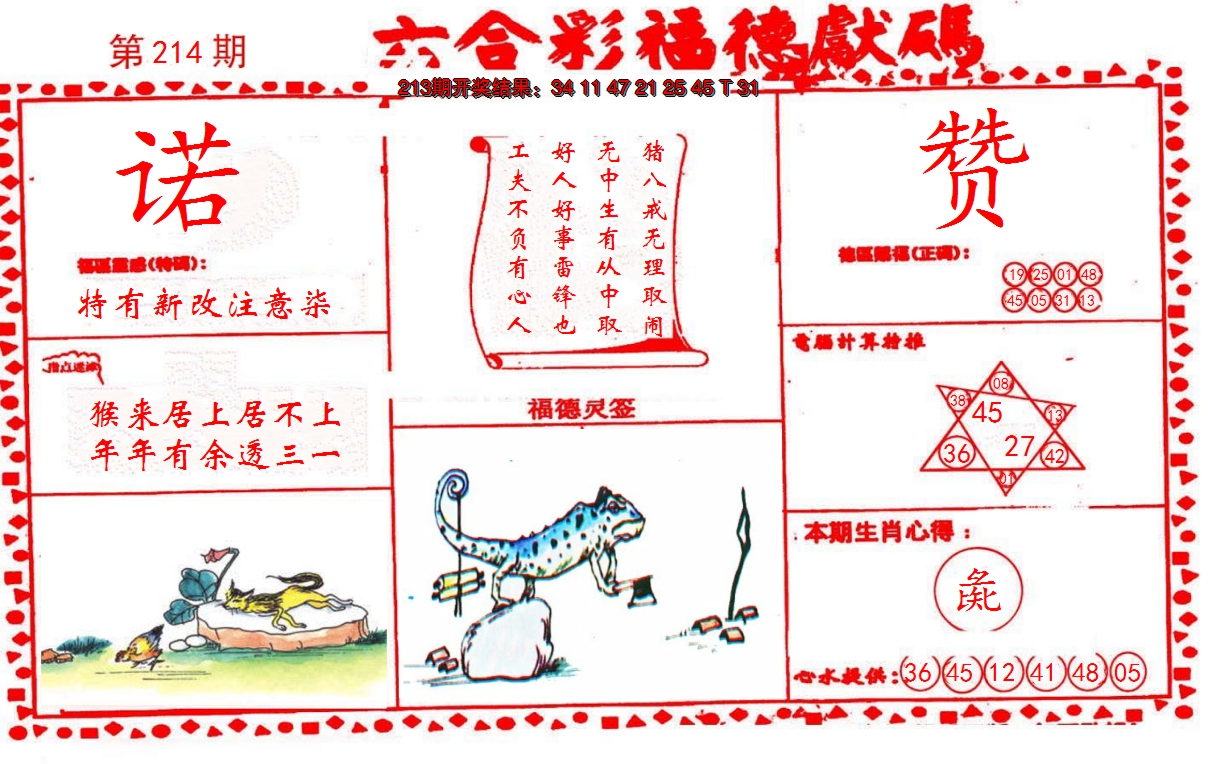 第214期
六合彩福德獻碼
213期开奖结果：34 11 47 21 25 45 T 31
诺
特有新改注意柒
猴来居上居不上
年年有余透三一
猪八戒无理取闹
无中生有从中取
好人好事雷锋也
工夫不负有心人
福德灵签
赞
19 25 01 48
45 05 31 13
電腦计算
08
38
45
13
36
27
42
01
本期生肖心得：
彘
心水提供：36 45 12 41 48 05